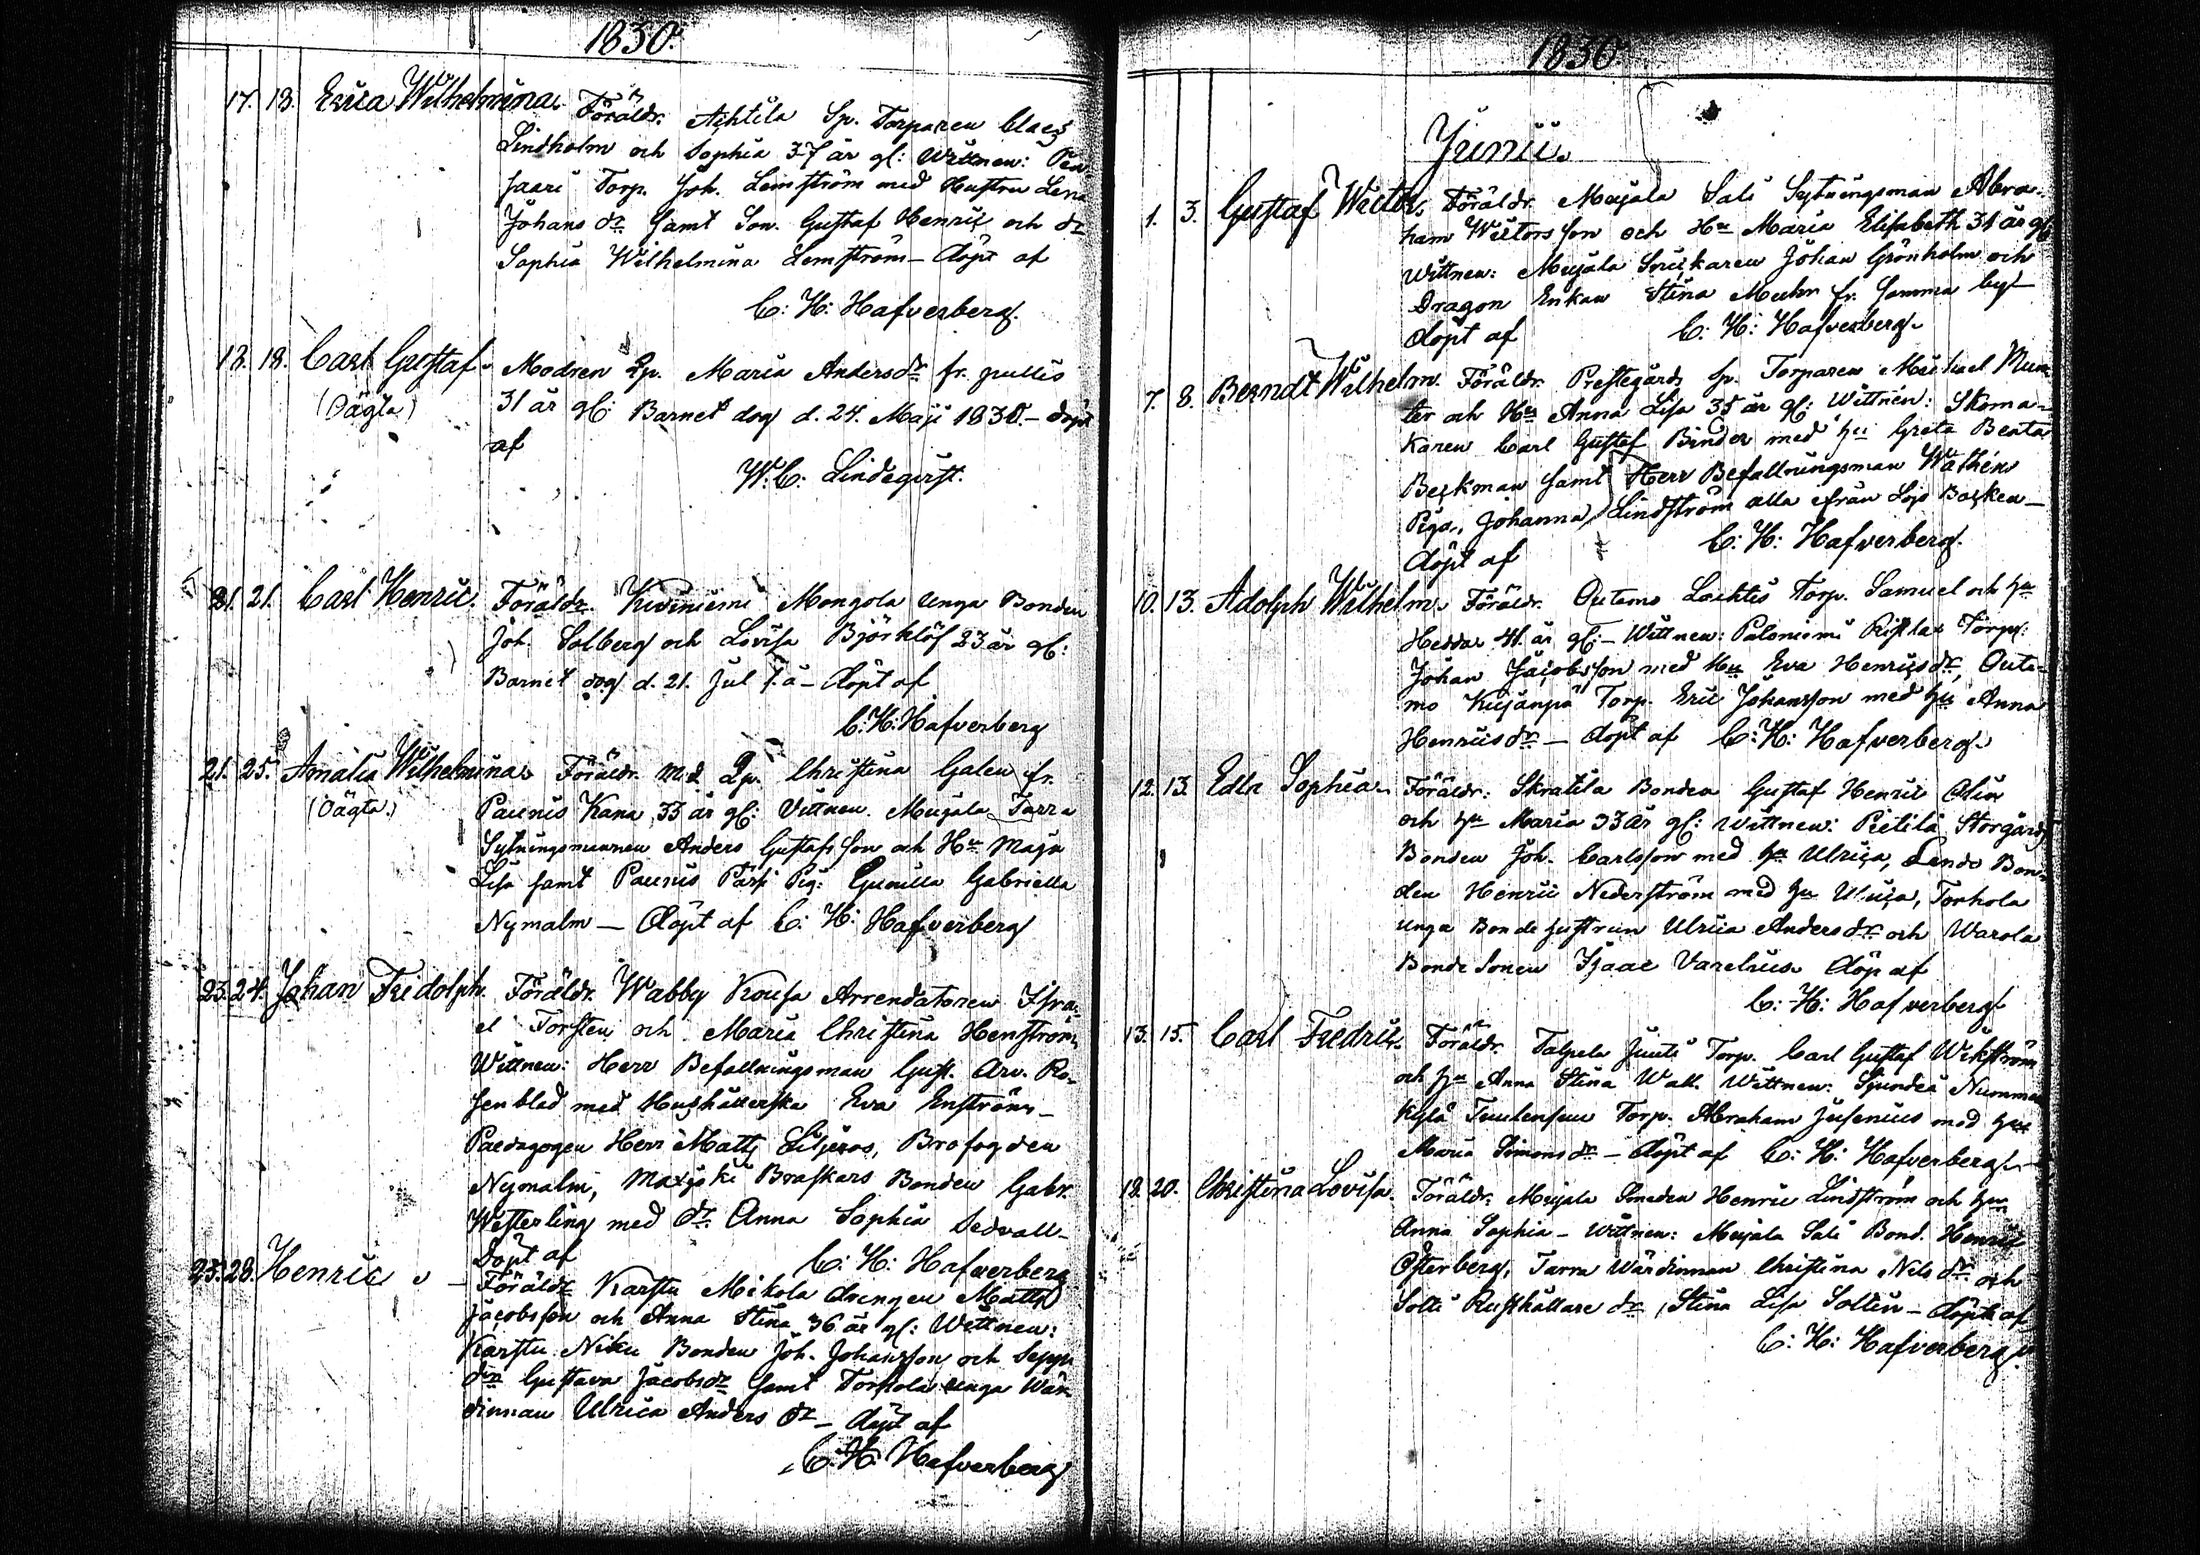 1830.
17. 18. Erica Wilhelmina. Föräldr. Ahtila Sp. Torparen Claes
Lindholm och Sophia 37 år gl: Wittnen:
saari Torp. Joh. Lemström med Hustru Lena
Johans dr samt Son. Gustaf Henric och dr
Sophia Wilhelmina Lemström – döpt af
C: H: Hafverberg.
18. 18. Carl Gustaf. Modren Qp. Maria Andersdr fr.
(Oägta) 31 år gl: Barnet dog d. 24. Maji 1830. – döpt
af
W. C: Lindeqvist.
21. 21. Carl Henric. Föräldr. Kiviniemi Mongola unga Bonden
Joh. Solberg och Lovisa Björklöf 23 år gl:
Barnet dog d. 21. Jul s. å – döpt af
C: H: Hafverberg
21. 25. Amalia Wilhelmina. Föräldr. Qp. Christina Galen fr.
(Oägta.) Paunis Kana 33 år gl: Vittnen. Mujala Tarra
Sytningsmannen Anders Gustafsson och Hu Maja
Lisa samt Paunis Pärsi Pig: Gunilla Gabriella
Nymalm – döpt af C: H: Hafverberg
23. 24. Johan Fridolph. Föräldr. Wabby Kousa Arrendatoren Isra-
el Torsten och Maria Christina Henström
Wittnen: Herr Befallningsman Gust. Arv. Ro-
senblad med Hushållerska Eva Enström –
Paedagogen Herr Matts Liljeros, Brofogden
Nymalm, Maxjoki Braskars Bonden Gabr.
Westerling med dr Anna Sophia Sedvall –
Döpt af C: H: Hafverberg
25. 28. Henric Föräldr Karstu Mikola drengen Matts
Jacobsson och Anna Stina 36 år gl: Wittnen:
Karstu Niku Bonden Joh. Johansson och Sepp
dr Gustava Jacobsdr samt Torhola unga Wär
dinnan Ulrica Anders dr – döpt af
C: H: Hafverberg
1830.
Junii.
1. 3. Gustaf Wictor. Föräldr. Mujala Sali Sytningsman Abra-
ham Wictorsson och Hu Maria Elisabeth 31 år gl:
Wittnen: Mujala Snickaren Johan Grönholm och
Dragon Enkan Stina fr. samma by –
döpt af C: H: Hafverberg.
7. 8. Berndt Wilhelm. Föräldr. Prestegårds Sp. Torparen Michael Mun
ter och Hu Anna Lisa 35 år gl: Wittnen: Skoma-
karen Carl Gustaf Binder med hu Greta Beata
Beckman samt Herr Befallningsman Wathén
Piga, Johanna Lindström alla ifrån Lojo Backen –
döpt af C: H: Hafverberg.
10. 13. Adolph Wilhelm. Föräldr. Outamo Lachtis Torp. Samuel och hu
Hedda 41. år gl: – Wittnen: Paloniemi Ristlax Torp:
Johan Jacobsson med Hu Eva Henricsdr, Outa-
mo Kujanpä Torp. Eric Johansson med hu Anna
Henricsdr – döpt af C: H: Hafverberg.
12. 13. Edla Sophia. Föräldr: Skratila Bonden Gustaf Henric Olin
och hu Maria 33 år gl: Wittnen: Pietilä Storgårds
Bonden Joh. Carlsson med hu Ulrica, Bon-
den Henric Nederström med hu Ulrica, Torhola
unga Bonde hustrun Ulrica Andersdr och Warola
Bonde Sonen Isaac Varelius. döp af
C: H: Hafverberg
13. 15. Carl Fredric. Föräldr. Talpela Juuti Torp. Carl Gustaf Wikström
och hu Anna Stina Wall. Wittnen: Sjundeå Numme
kylä Torp. Abraham Jusenius med hu
Maria Simonsdr – döpt af C: H: Hafverberg.
18. 20. Christina Lovisa. Föräldr: Mujala Smeden Henric Lindström och hu
Anna Sophia – Wittnen: Mujala Sali Bond. Henric
Österberg, Tarra Wärdinnan Christina Nils dr och
Solti Rusthållare dr, Stina Lisa Soltin – döpt af
C: H: Hafverberg.